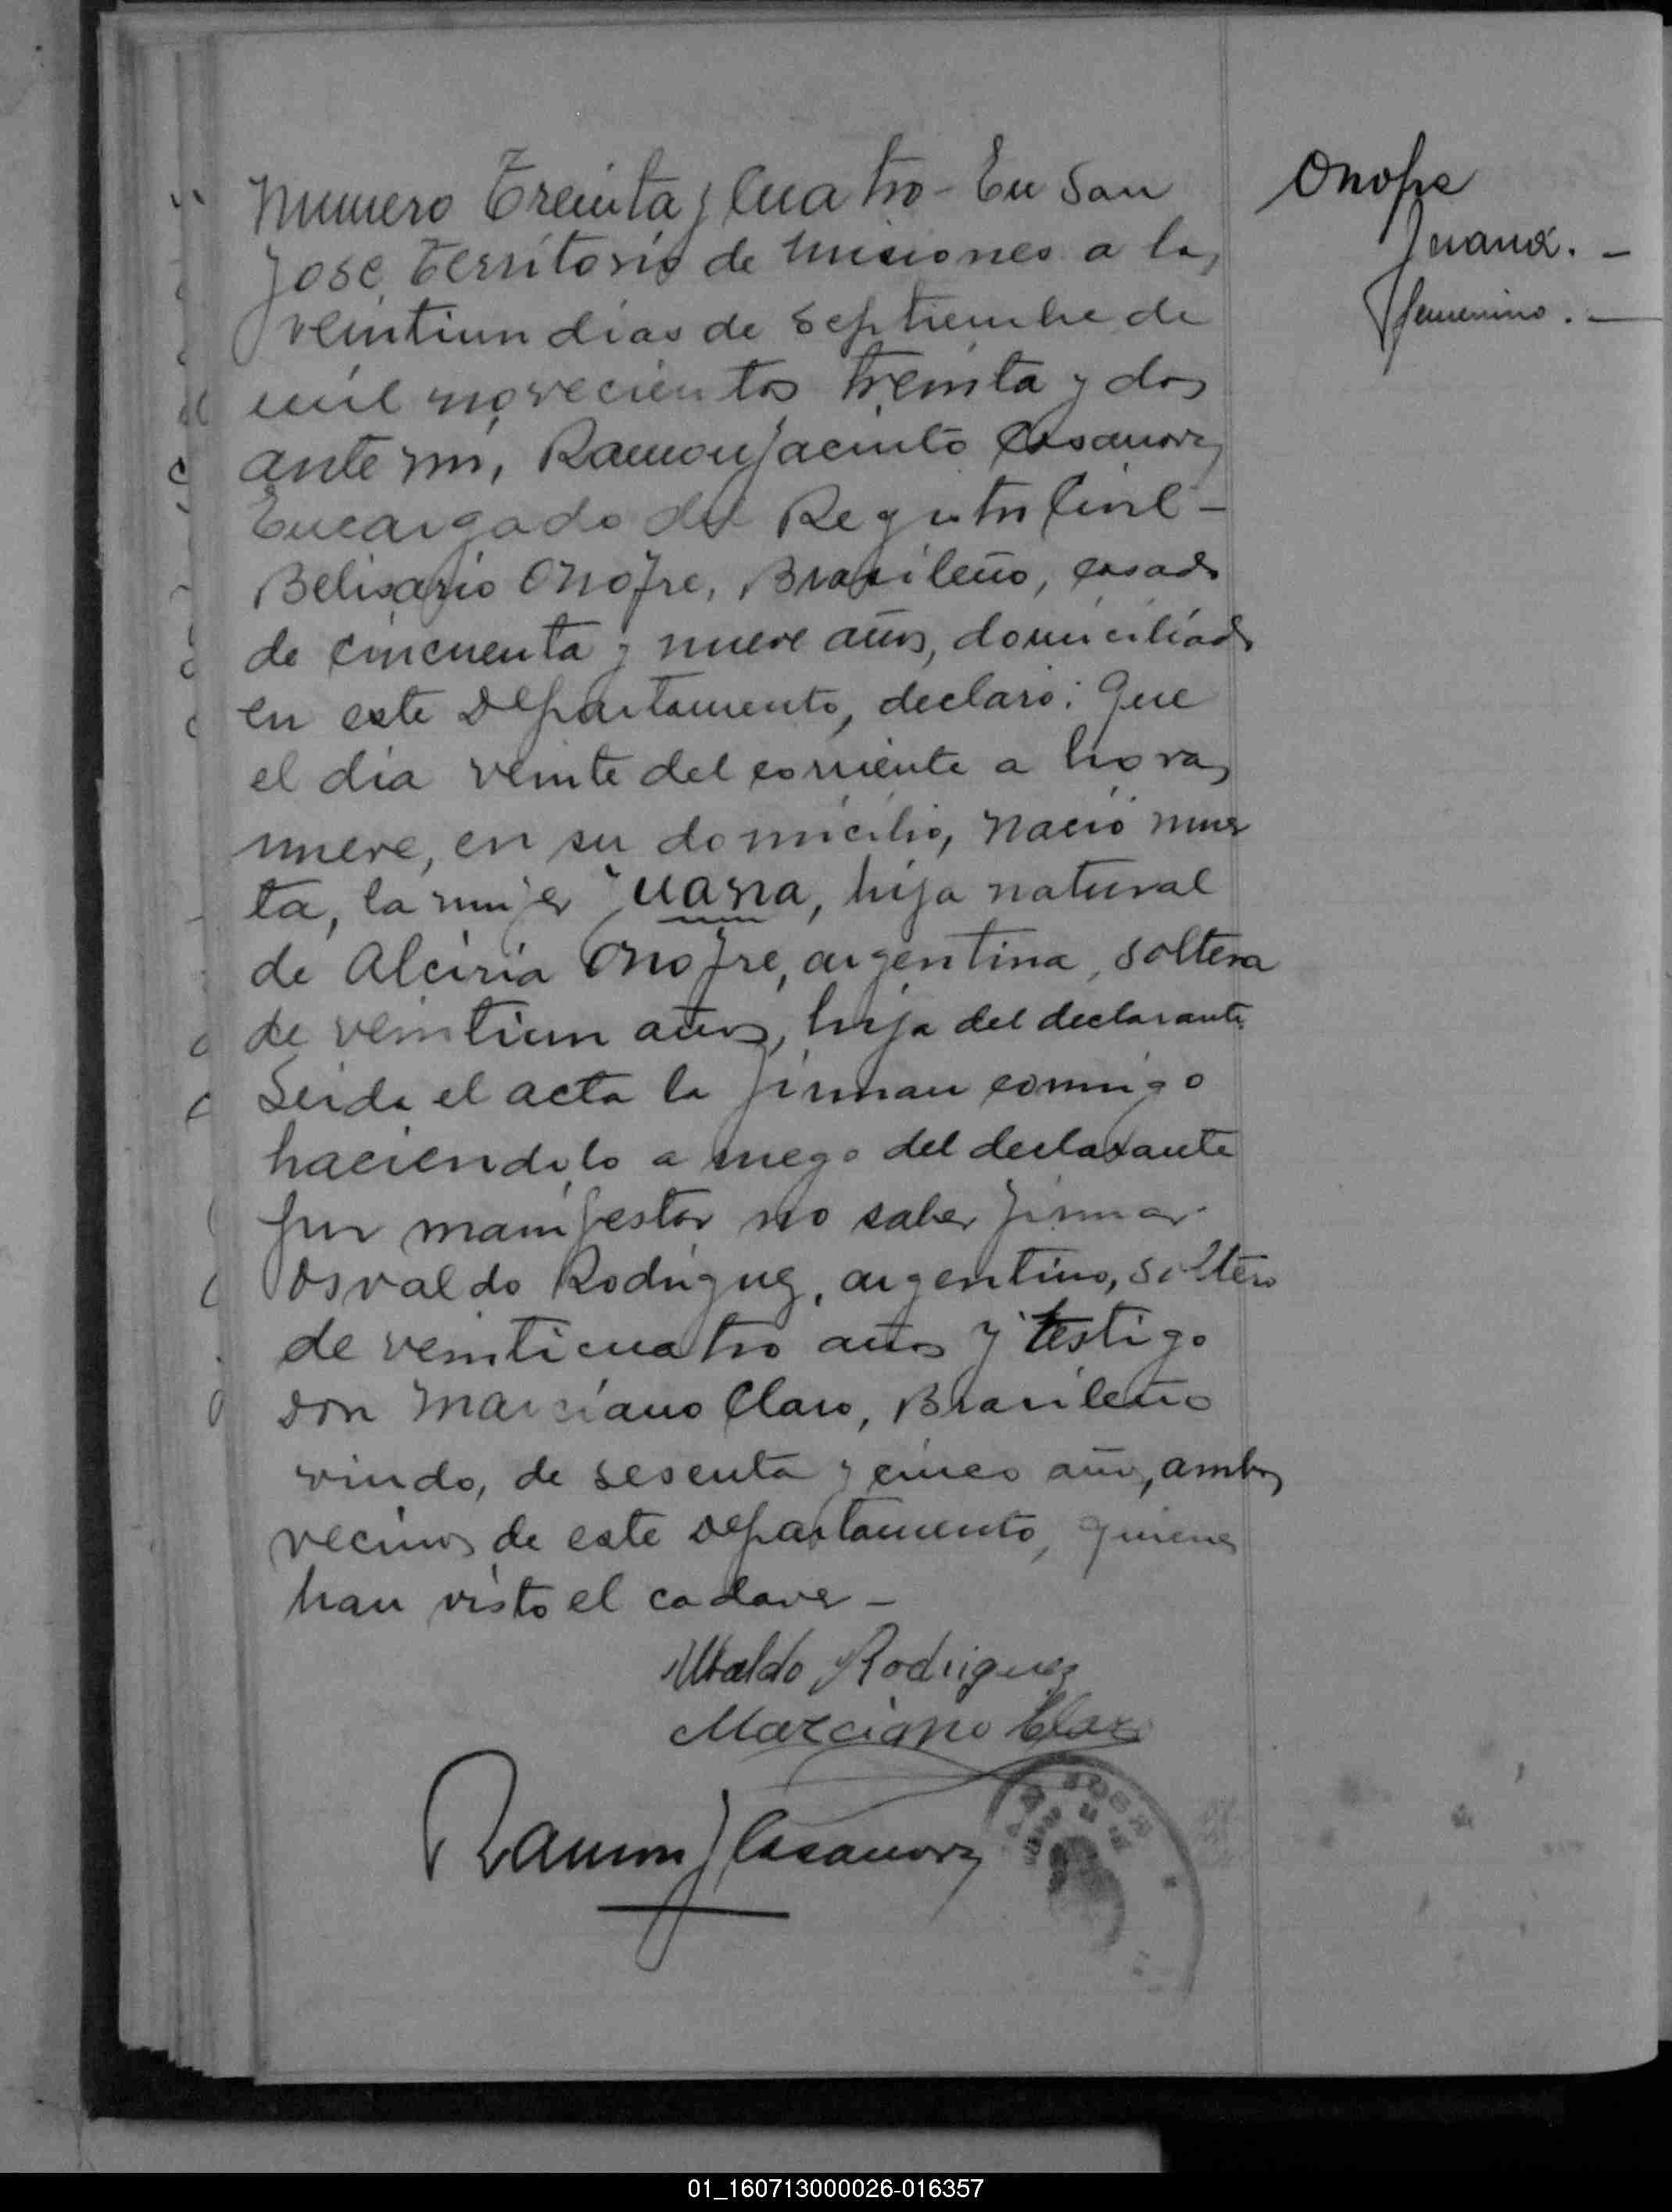 Numero Treinta y Cuatro - En San
Jose, Territorio de Misiones a los
veintiun dias de Septiembre de
mil novecientos treinta y dos
ante mi, Ramon Jacinto Casanova,
Encargado del Registro Civil -
Belisario Onofre, Brasileño, casado
de cincuenta y nueve años, domiciliado
en este Departamento, declaró: Que
el dia veinte del corriente a horas
nueve, en su domicilio, nació muer
ta, la mujer Juana, hija natural
de Alciria Onofre, argentina, soltera
de veintiun años, hija del declarante
Leida el acta la firman conmigo
haciendolo a ruego del declarante
por manifestar no saber firmar
Osvaldo Rodriguez, argentino, soltero
de veinticuatro años y testigo
don Marciano Claro, Brasileño
viudo, de sesenta y cinco años, ambos
vecinos de este Departamento, quienes
han visto el cadaver -
Rodriguez
Marciano Claro
Ramon J Casanova
Onofre
Juana. -
femenino. -
01_160713000026-016357